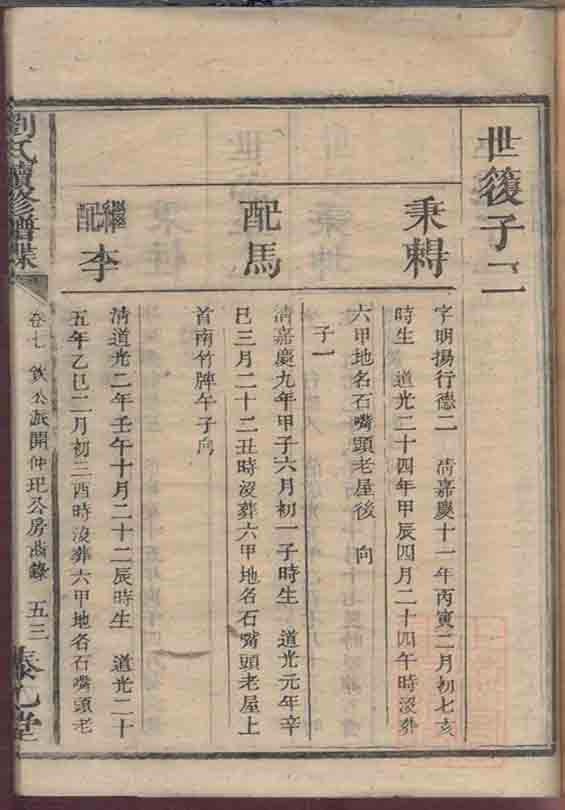 世䕶子二
秉𨍭
字明揚行德二 清嘉慶十一年丙寅二月初七亥
時生 道光二十四年甲辰四月二十四午時沒葬
六甲地名石嘴頭老屋後 向
子一
配馬
清嘉慶九年甲子六月初一子時生 道光元年辛
巳三月二十二丑時沒葬六甲地名石嘴頭老屋上
首南竹牌午子向
繼配李
清道光二年壬午十月二十二辰時生 道光二十
五年乙巳二月初三酉時沒葬六甲地名石嘴頭老
劉氏續修譜牒
卷七 欽公派開仲玘公房齒錄 五三